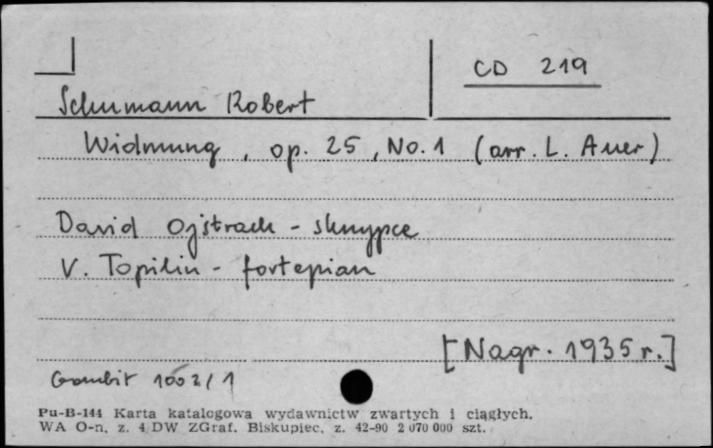 CD 219
Schumann Robert
Widmung, op. 25, No. 1 (arr. L. Auer)
David Ojstrach - skrzypce
V. Topilin - fortepian
[Nagr. 1935 r.]
Gambit 1002/1
Pu-B-144 Karta katalogowa wydawnictw zwartych i ciągłych.
WA O-n, z. 4 DW ZGraf. Biskupiec, z. 42-90 2 070 000 szt.